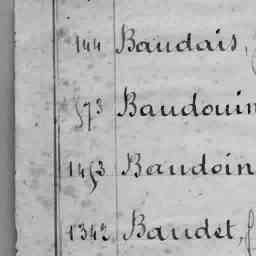 144 Baudais,
573 Baudouin
1453 Baudoin
1342 Baudet,